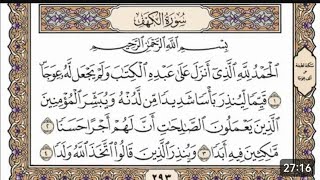 سُورَةُ الكَهْفِ
بِسْمِ اللَّهِ الرَّحْمَٰنِ الرَّحِيمِ
الْحَمْدُ لِلَّهِ الَّذِي أَنزَلَ عَلَىٰ عَبْدِهِ الْكِتَٰبَ وَلَمْ يَجْعَل لَّهُ عِوَجَا ١
قَيِّمًا لِّيُنذِرَ بَأْسًا شَدِيدًا مِّن لَّدُنْهُ وَيُبَشِّرَ الْمُؤْمِنِينَ
الَّذِينَ يَعْمَلُونَ الصَّٰلِحَٰتِ أَنَّ لَهُمْ أَجْرًا حَسَنًا ٢
مَّٰكِثِينَ فِيهِ أَبَدًا ٣ وَيُنذِرَ الَّذِينَ قَالُوا اتَّخَذَ اللَّهُ وَلَدًا ٤
٢٩٣
27:16